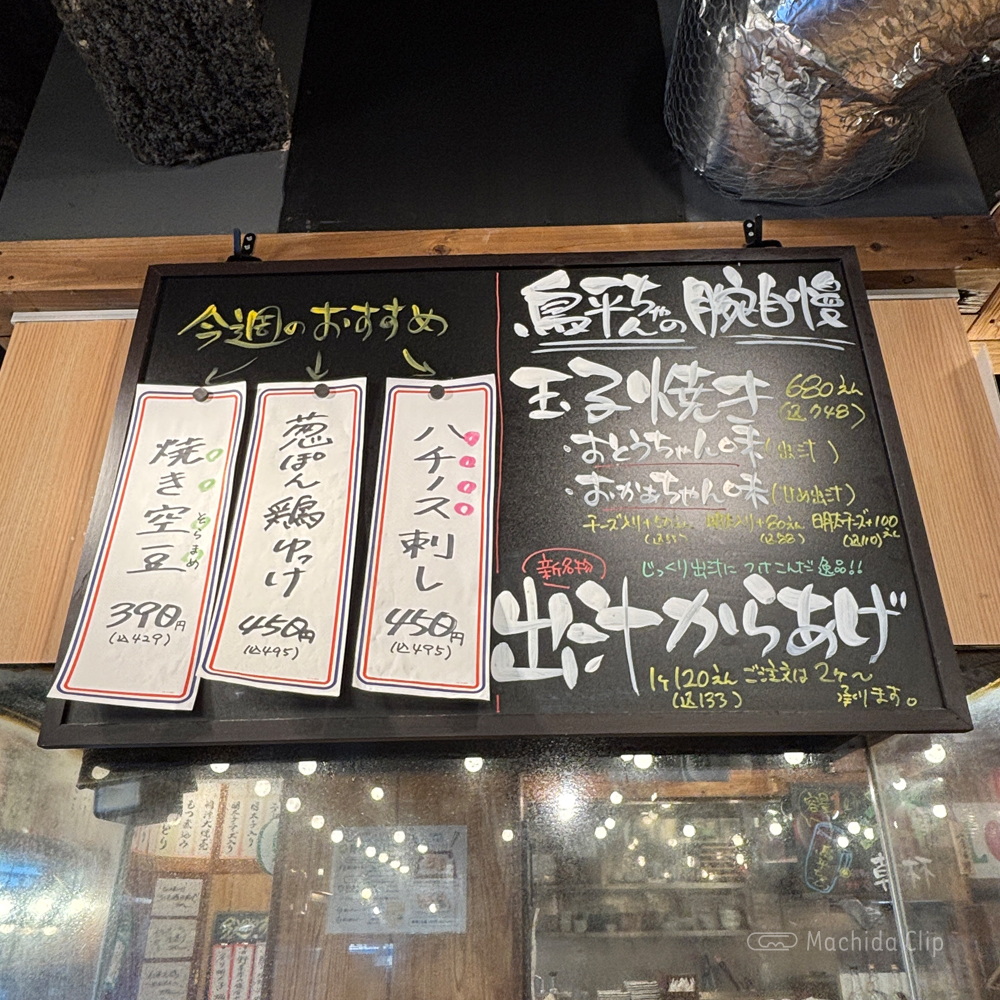 今週のおすすめ
焼き空豆
そらまめ
390円
(込429)
葱ぽん鶏ゆっけ
450円
(込495)
ハチノス刺し
450円
(込495)
鳥平ちゃんの腕自慢
玉子焼き 680えん
(込748)
・おとうちゃん味(出汁)
・おかあちゃん味(甘め出汁)
チーズ入り+50えん 明太入り+80えん 明太チーズ+100えん
(込55) (込88) (込110)
新名物 じっくり出汁につけこんだ逸品!!
出汁からあげ
1ケ120えん ご注文は2ケ〜
(込133) 承ります。
Machida Clip